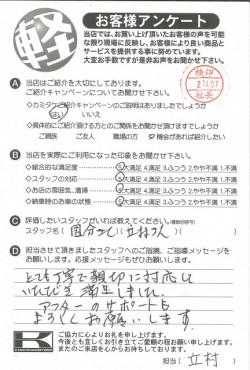 軽
お客様アンケート
当店では、お買い上げ頂いたお客様の声を可能
な限り現場に反映し、お客様により良い商品と
サービスを提供する事に努めています。
大変お手数ですが是非お声をお聞かせ下さい。
検印
社長
A 当店はご紹介を大切にしております。
ご紹介キャンペーンについてお聞かせ下さい
◇カミタケご紹介キャンペーンのご説明はありましたでしょうか
はい いいえ
◇具体的にご紹介頂ける方とのご関係をお聞かせ頂けますでしょうか
ご親族 ご友人 職場の方 機会があれば紹介したい
B 当店を実際にご利用になった印象をお聞かせ下さい。
◇総合的な満足度 5大満足 4.満足 3.ふつう 2.やや不満 1.不満
◇スタッフの対応 5大満足 4.満足 3.ふつう 2.やや不満 1.不満
◇お店の雰囲気、清掃 5大満足 4.満足 3.ふつう 2.やや不満 1.不満
◇納車時のお車の状態 5大満足 4.満足 3.ふつう 2.やや不満 1.不満
C 評価したいスタッフがいれば教えてください。(複数回答可)
スタッフ名( 国分さん 立村さん )
D 担当させて頂きましたスタッフへのご感謝、ご指導メッセージを
お願いします。応援メッセージもぜひお聞かせ下さい。
とても丁寧で親切に対応して
いただき満足しました。
アフターのサポートも
よろしくお願いします。
K
ご協力に心よりお礼を申し上げます。
今後とも宜しくお引き立てご愛顧の程お願い申し上げます。
またのご来店を心からお待ちしております。
担当( 立村 )